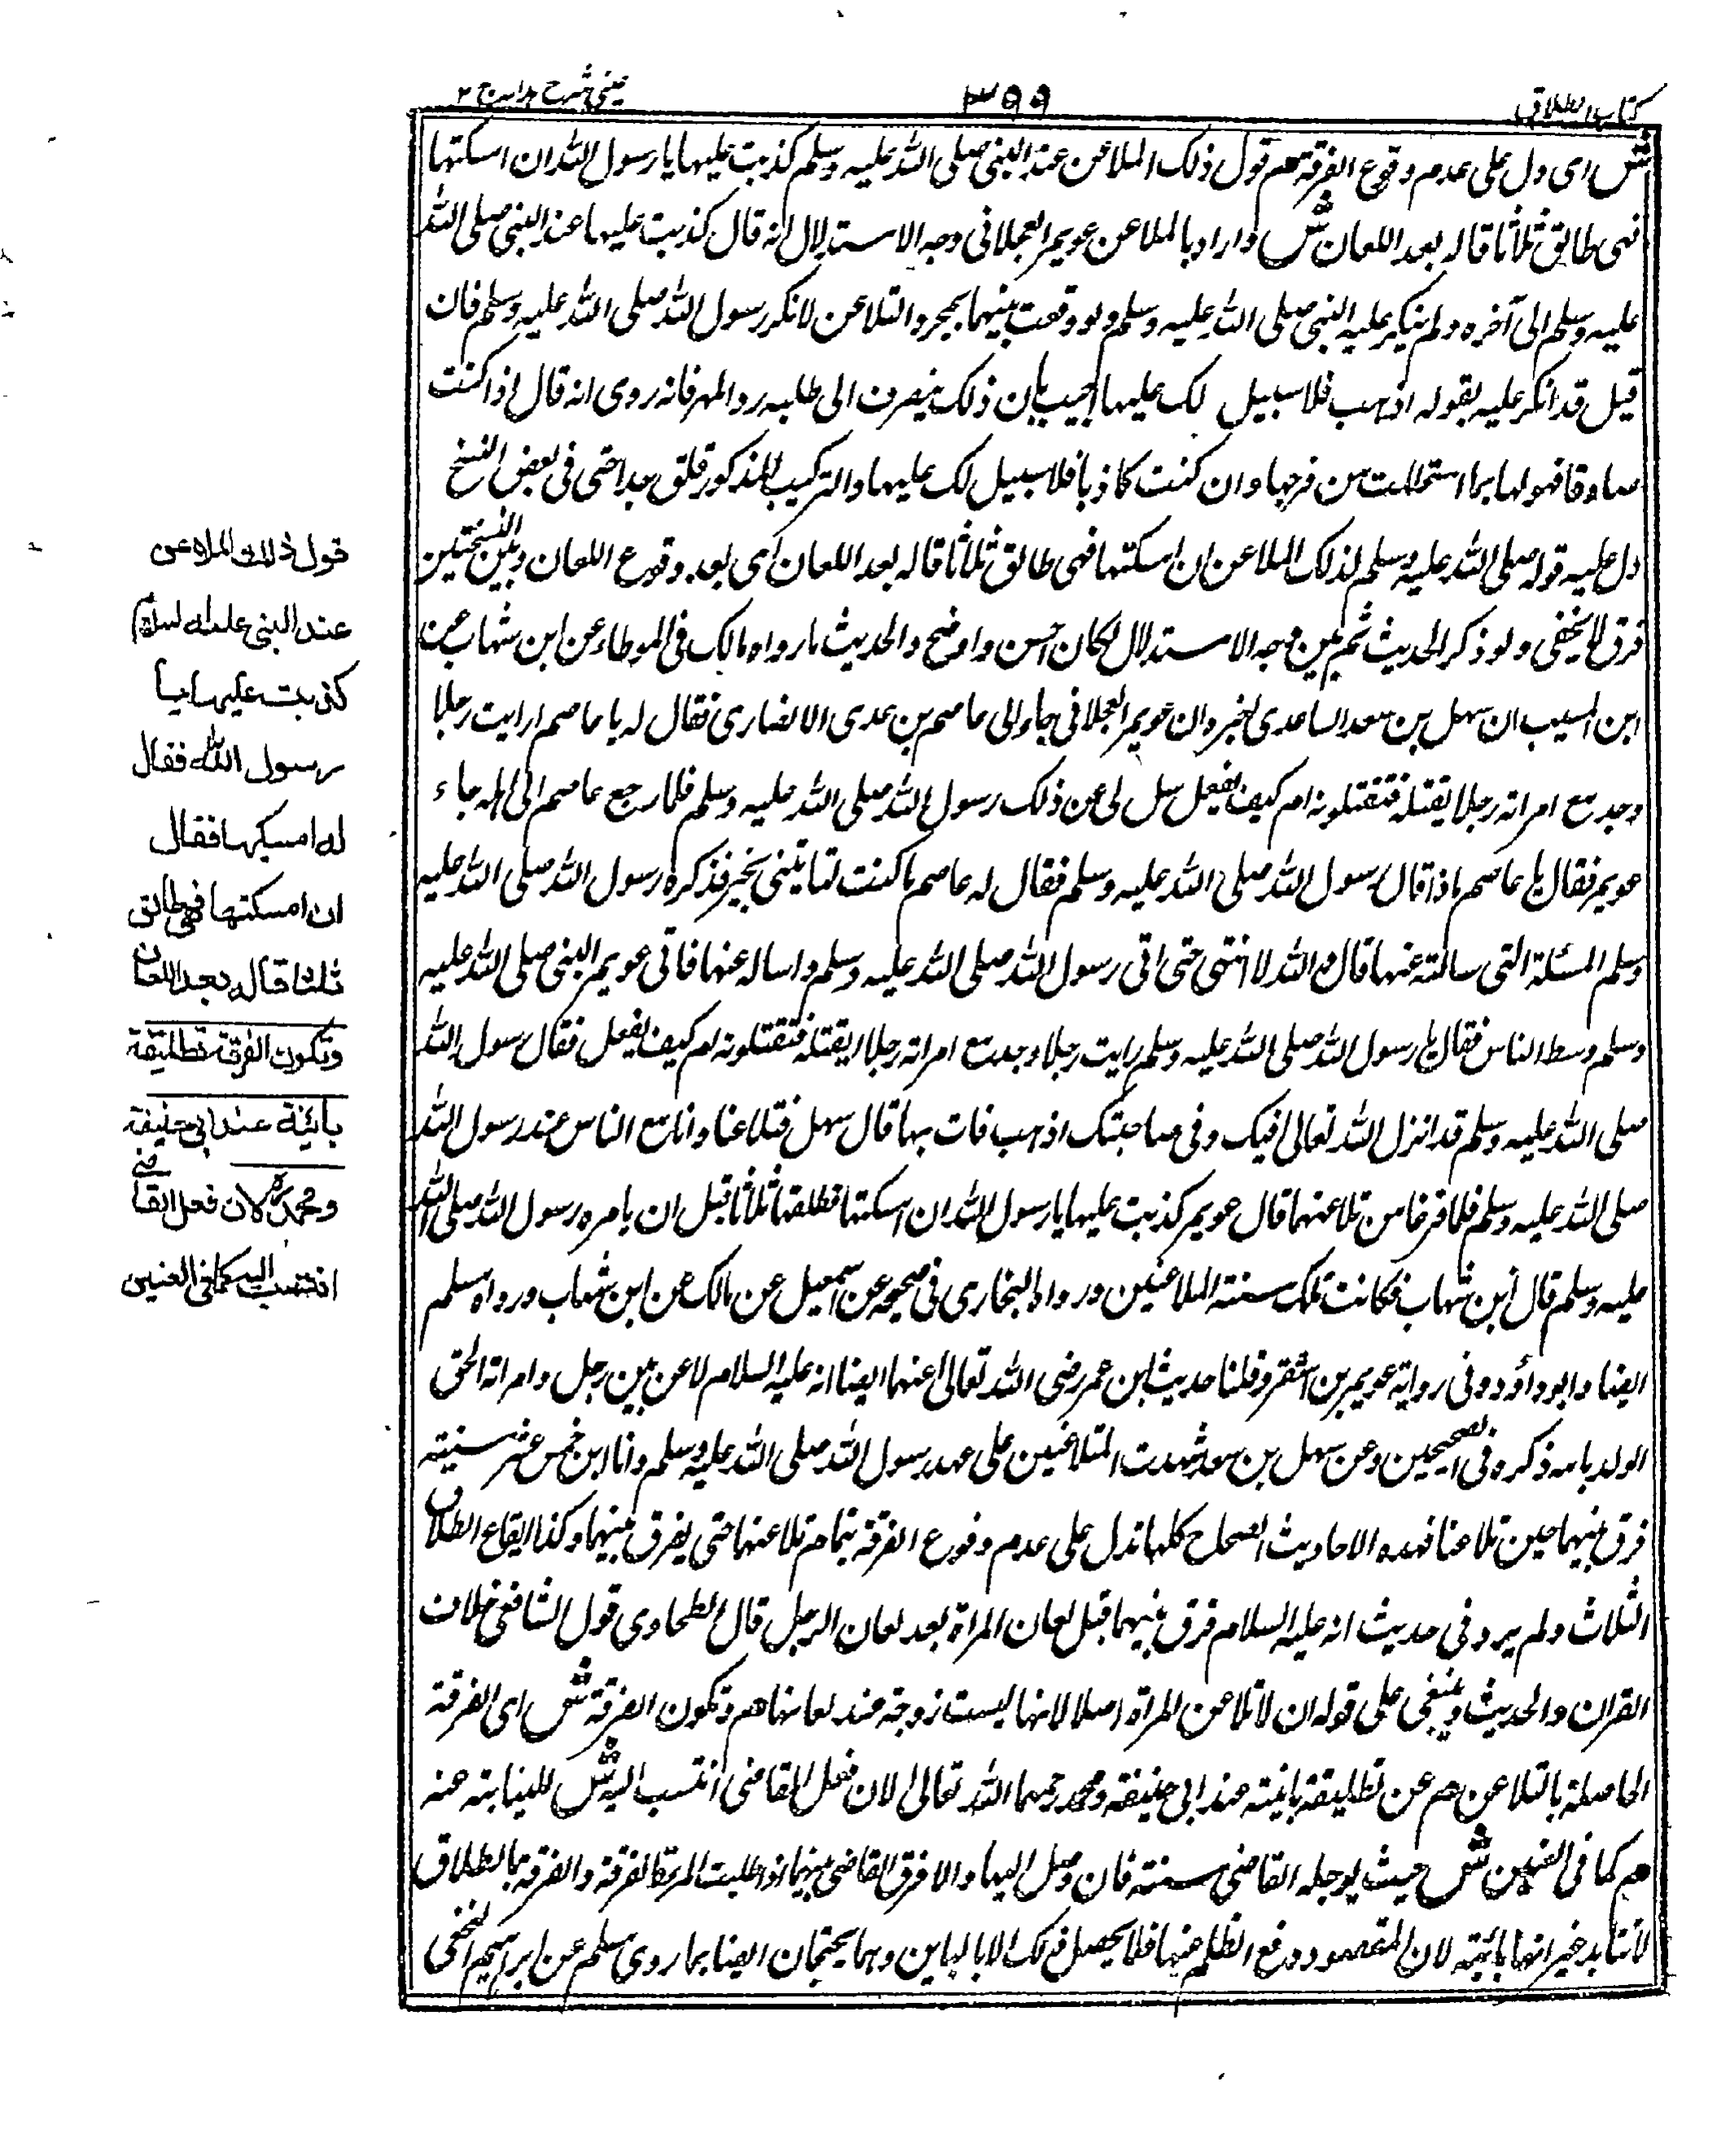 كتاب الطلاق
٣٩٩
عينى شرح هدايه ج ٢
ش اى دل على عدم وقوع الفرقة هم قول ذلك الملاعن عند النبى صلى الله عليه وسلم كذبت عليها يا رسول الله ان امسكتها
فهى طالق ثلاثا قاله بعد اللعان ش واراد بالملاعن عويمر العجلانى وجه الاستدلال انه قال كذبت عليها عند النبى صلى الله
عليه وسلم الى آخره ولم ينكر عليه النبى صلى الله عليه وسلم ولو وقعت بينهما بمجرد التلاعن لانكر رسول الله صلى الله عليه وسلم فان
قيل قد انكر عليه بقوله اذهب فلا سبيل لك عليها اجيب بان ذلك ينصرف الى طلبه رد المهر فانه روى انه قال اذا كنت
صادقا فهو لها بما استحللت من فرجها وان كنت كاذبا فلا سبيل لك عليها والتركيب المذكور قلق جدا حتى فى بعض النسخ
دل عليه قوله صلى الله عليه وسلم لذلك الملاعن ان امسكتها فهى طالق ثلاثا قاله بعد اللعان اى بعد وقوع اللعان وبين النسختين
فرق لا يخفى ولو ذكر الحديث ثم بين وجه الاستدلال لكان احسن واوضح والحديث ما رواه مالك فى الموطاء عن ابن شهاب عن
ابن المسيب ان سهل بن سعد الساعدى اخبره ان عويمر العجلانى جاء الى عاصم بن عدى الانصارى فقال له يا عاصم ارايت رجلا
وجد مع امراته رجلا يقتله فتقتلونه ام كيف يفعل سل لى عن ذلك رسول الله صلى الله عليه وسلم فلما رجع عاصم الى اهله جاء
عويمر فقال يا عاصم ماذا قال رسول الله صلى الله عليه وسلم فقال له عاصم ما كنت لتاتينى بخير قد كره رسول الله صلى الله عليه
وسلم المسئلة التى سالته عنها قال والله لا انتهى حتى اتى رسول الله صلى الله عليه وسلم واساله عنها فاتى عويمر النبى صلى الله عليه
وسلم وسط الناس فقال يا رسول الله صلى الله عليه وسلم رايت رجلا وجد مع امراته رجلا ايقتله فتقتلونه ام كيف يفعل فقال رسول الله
صلى الله عليه وسلم قد انزل الله تعالى فيك وفى صاحبتك اذهب فات بها قال سهل فتلاعنا وانا مع الناس عند رسول الله
صلى الله عليه وسلم فلما فرغا من تلاعنهما قال عويمر كذبت عليها يا رسول الله ان امسكتها فطلقها ثلاثا قبل ان يامره رسول الله صلى الله
عليه وسلم قال ابن شهاب فكانت تلك سنة الملاعنين ورواه البخارى فى صحيحه عن اسمعيل عن مالك عن ابن شهاب ورواه مسلم
ايضا وابو داؤد وفى رواية عويمر بن اشقر وقلنا حديث ابن عمر رضى الله تعالى عنهما ايضا انه عليه السلام لاعن بين رجل وامراته الحق
الولد بامه ذكره فى الصحيحين وعن سهل بن سعد شهدت المتلاعنين على عهد رسول الله صلى الله عليه وسلم وانا ابن خمس عشر سنيته
فرق بينهما حين تلاعنا فهده الاحاديث الصحاح كلها تدل على عدم وقوع الفرقة بتمام تلاعنهما حتى يفرق بينهما وكذا ايقاع الطلاق
الثلاث ولم يرو فى حديث انه عليه السلام فرق بينهما قبل لعان المراة بعد لعان الرجل قال الطحاوى قول الشافعى خلاف
القران والحديث وينبغى على قوله ان لا تلاعن المراة اصلا لانها ليست زوجة عند لعانها هم وتكون الفرقة ش اى الفرقة
الحاصلة بالتلاعن هم عن تطليقة بائنة عند ابى حنيفة ومحمد رحمهما الله تعالى لان فعل القاضى انتسب اليه ش للنيابته عنه
هم كما فى العنين ش حيث يوجله القاضى سنته فان وصل اليها والا فرق القاضى بينهما اذا طلبت المراة الفرقة والفرقة بالطلاق
لا تتابد غير انها بائنة لان المقصود دفع الظلم عنها فلا يحصل ذلك الا بالباين وهما يحتجان ايضا بما روى مسلم عن ابراهيم النخعى
قول ذلك الملاعن
عند النبى عليه السلام
كذبت عليها يا
رسول الله فقال
له امسكها فقال
ان امسكتها فهى طالق
ثلثا قاله بعد اللعان
وتكون الفرقة تطليقة
بائنة عند ابى حنيفة
ومحمد رح لان فعل القاضى
انتسب اليه كما فى العنين